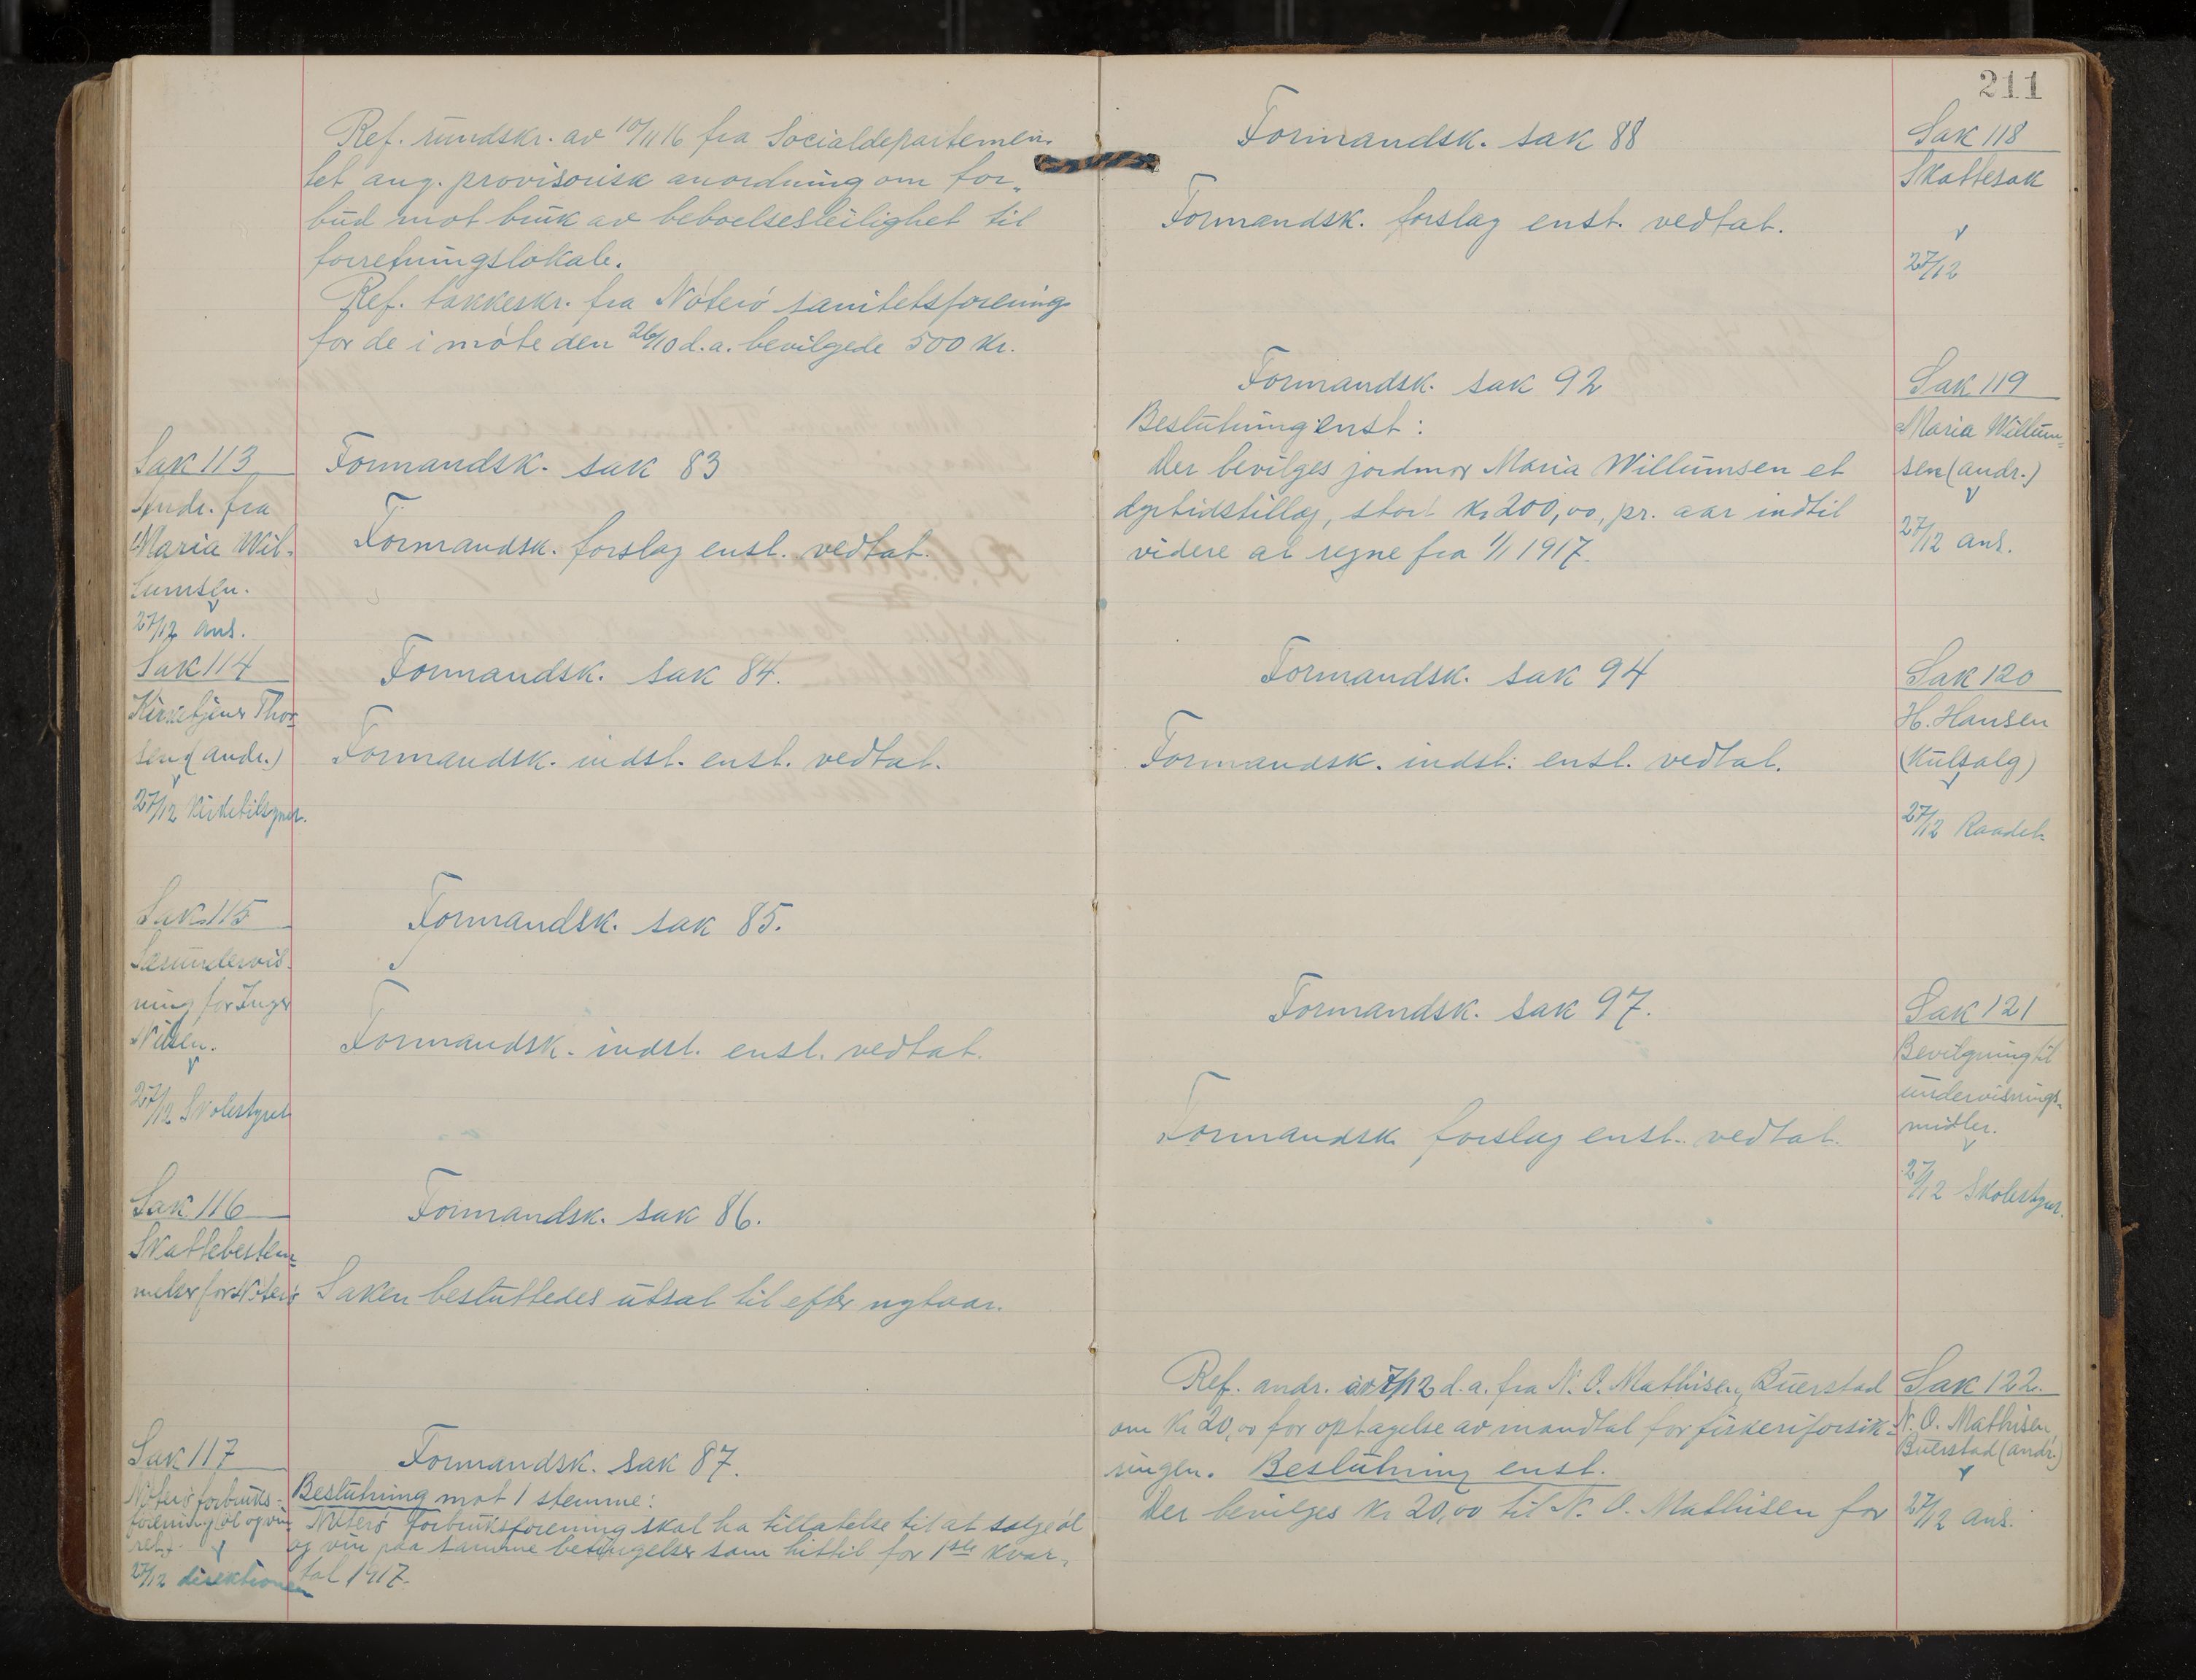 Ref. rundskr. av 10/11 16 fra Socialdepartemen-
tet ang. provisorisk anordning om for-
bud mot bruk av beboelsesleilighet til
forretningslokale.
Ref. takkeskr. fra Nøterø sanitetsforening
for de i møte den 26/10 d.a. bevilgede 500 kr.
Sak 113
Andr. fra
Maria Wil-
lumsen.
27/12 ans.
Formandsk. sak 83
Formandsk. forslag enst. vedtat.
Sak 114
Kirketjener Thor-
sen (andr.)
27/12 Kirketilsynet.
Formandsk. sak 84.
Formandsk. indst. enst. vedtat.
Sak 115
Særundervis-
ning for Inger
Nilsen.
27/12 Skolestyret
Formandsk. sak 85.
Formandsk. indst. enst. vedtat.
Sak 116
Skattebestem-
melser for Nøterø
Formandsk. sak 86.
Saken besluttedes utsat til efter nytaar.
Sak 117
Nøterø forbruks-
forening (øl og vin-
ret).
27/12 direktionen
Formandsk. sak 87.
Beslutning mot 1 stemme:
Nøterø forbruksforening skal ha tillatelse til at sælge øl
og vin paa samme betingelser som hittil for 1ste kvar-
tal 1917.
211
Formandsk. sak 88
Formandsk. forslag enst. vedtat.
Sak 118
Skattesak
27/12
Formandsk. sak 92
Beslutning enst:
Der bevilges jordmor Maria Willumsen et
dyrtidstillæg, stort kr 200,00, pr. aar indtil
videre at regne fra 1/1 1917.
Sak 119
Maria Willum-
sen (andr.)
27/12 ans.
Formandsk. sak 94
Formandsk. indst. enst. vedtat.
Sak 120
H. Hansen
(Kulsalg)
27/12 Raadet
Formandsk. sak 97.
Formandsk forslag enst. vedtat.
Sak 121
Bevilgning til
undervisnings-
midler.
27/12 Skolestyr.
Ref. andr. av 7/12 d.a. fra N. O. Mathisen, Buerstad
om kr 20,00 for optagelse av mandtal for fiskeriforsik-
ringen. Beslutning enst.
Der bevilges kr 20,00 til N. O. Mathisen for
Sak 122.
N. O. Mathisen,
Buerstad (andr.)
27/12 ans.